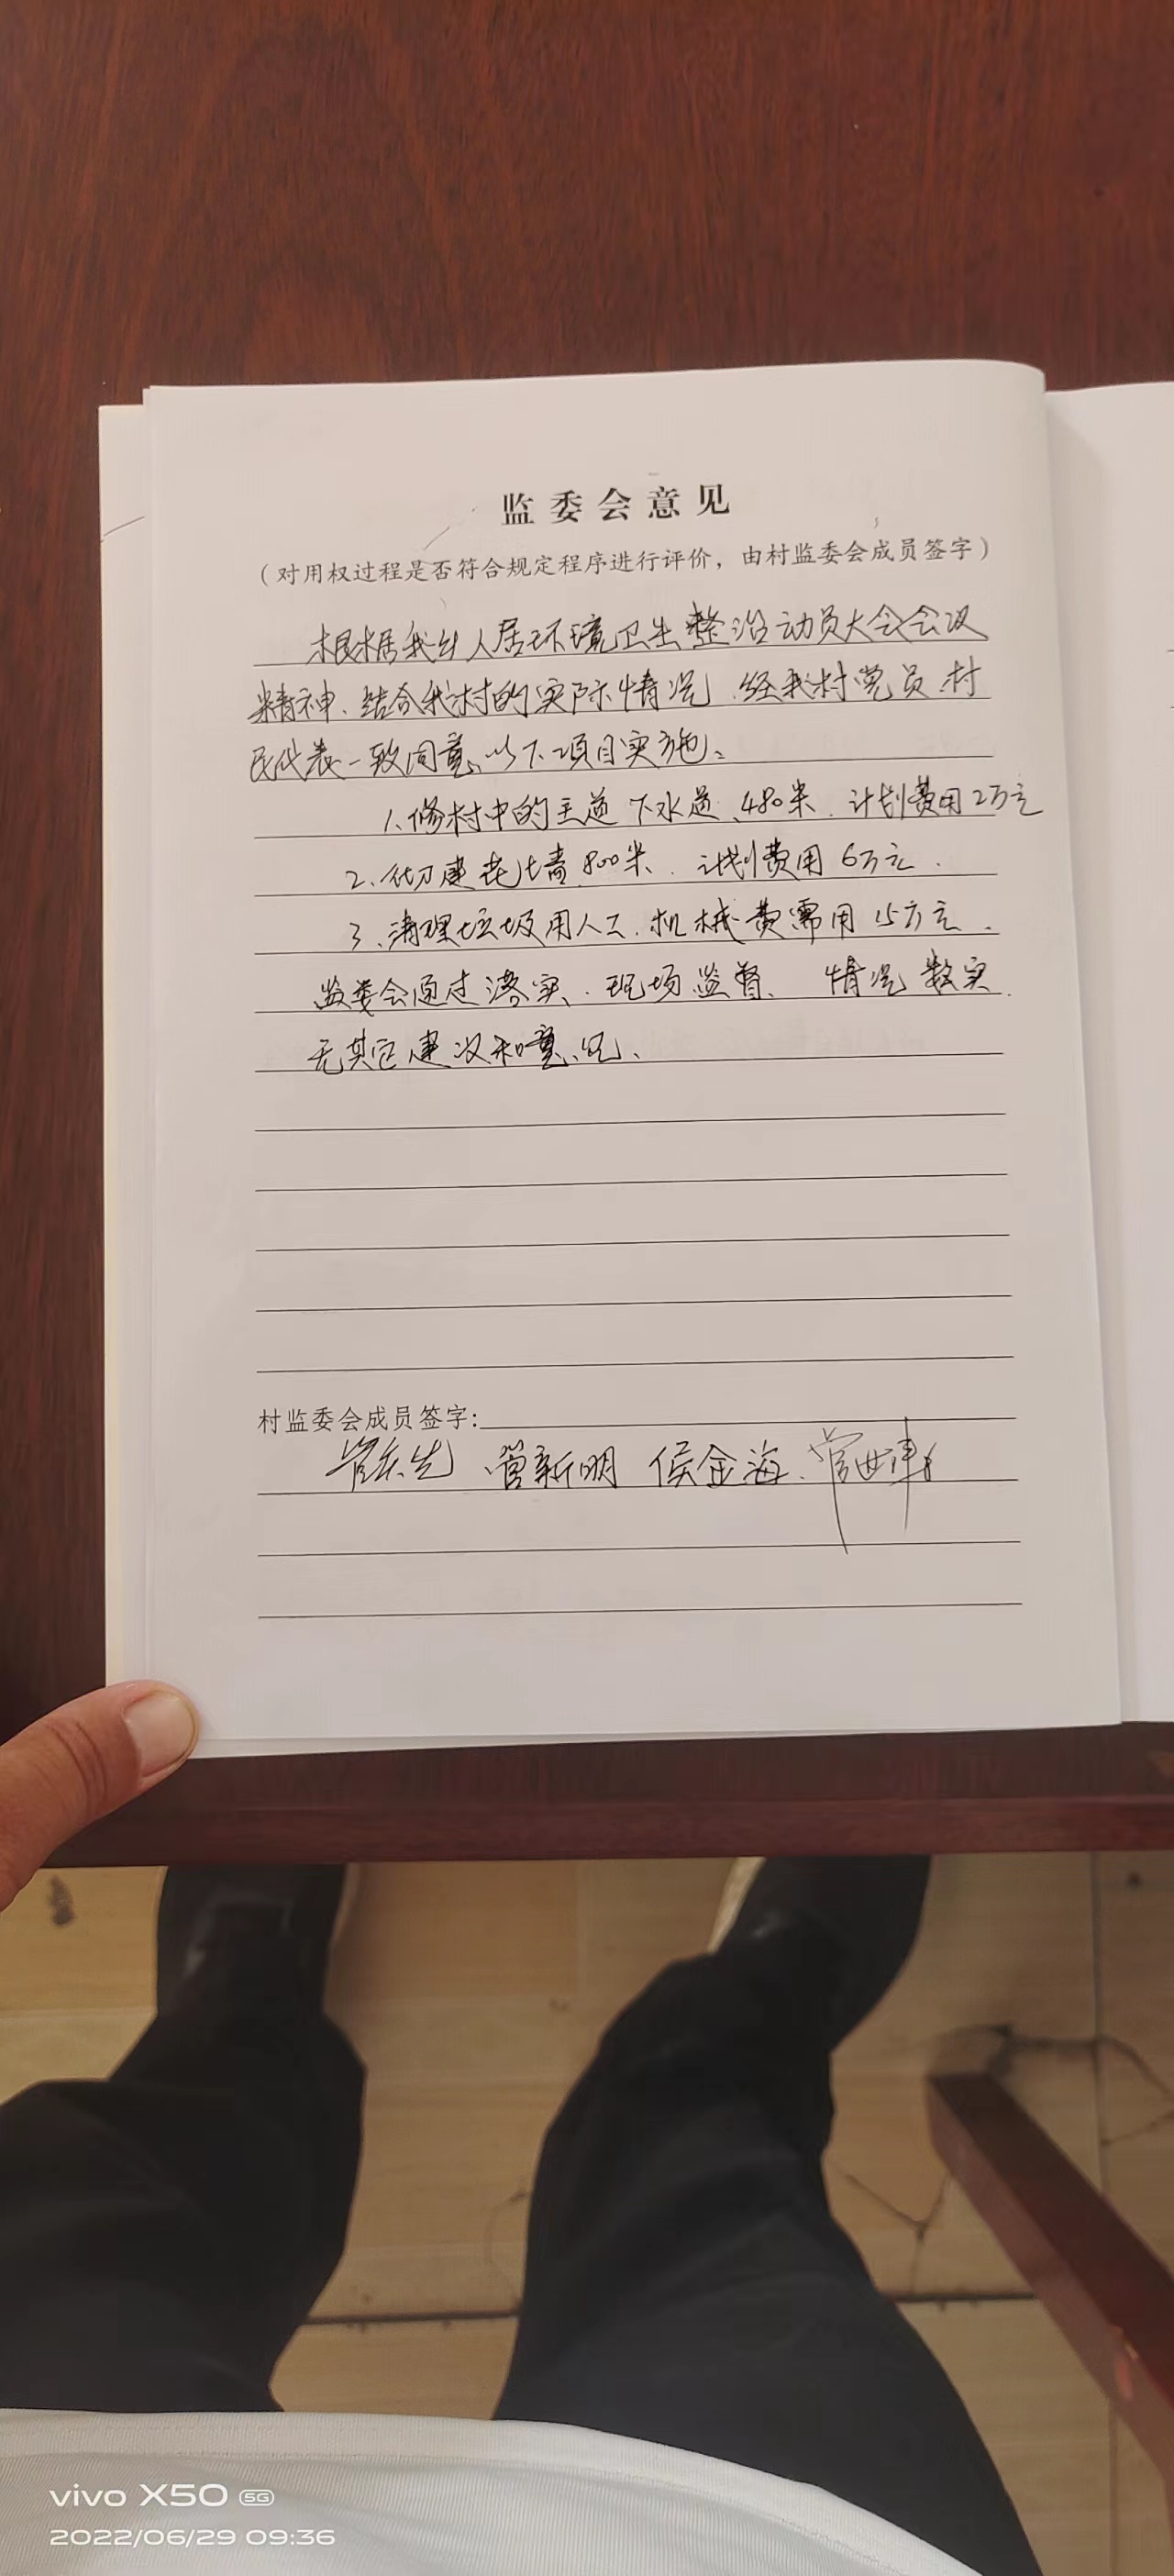 监委会意见
（对用权过程是否符合规定程序进行评价，由村监委会成员签字）
根据我乡人居环境卫生整治动员大会会议
精神、结合我村的实际情况、经我村党员、村
民代表一致同意、以下项目实施：
1、修村中的主道下水道、480米、计划费用2万元
2、砌建花墙800米、计划费用6万元、
3、清理垃圾用人工、机械费需用15万元、
监委会通过落实、现场监督、情况数实
无其它建议和意见、
村监委会成员签字：
管新明 侯金海、
vivo X50 5G
2022/06/29 09:36